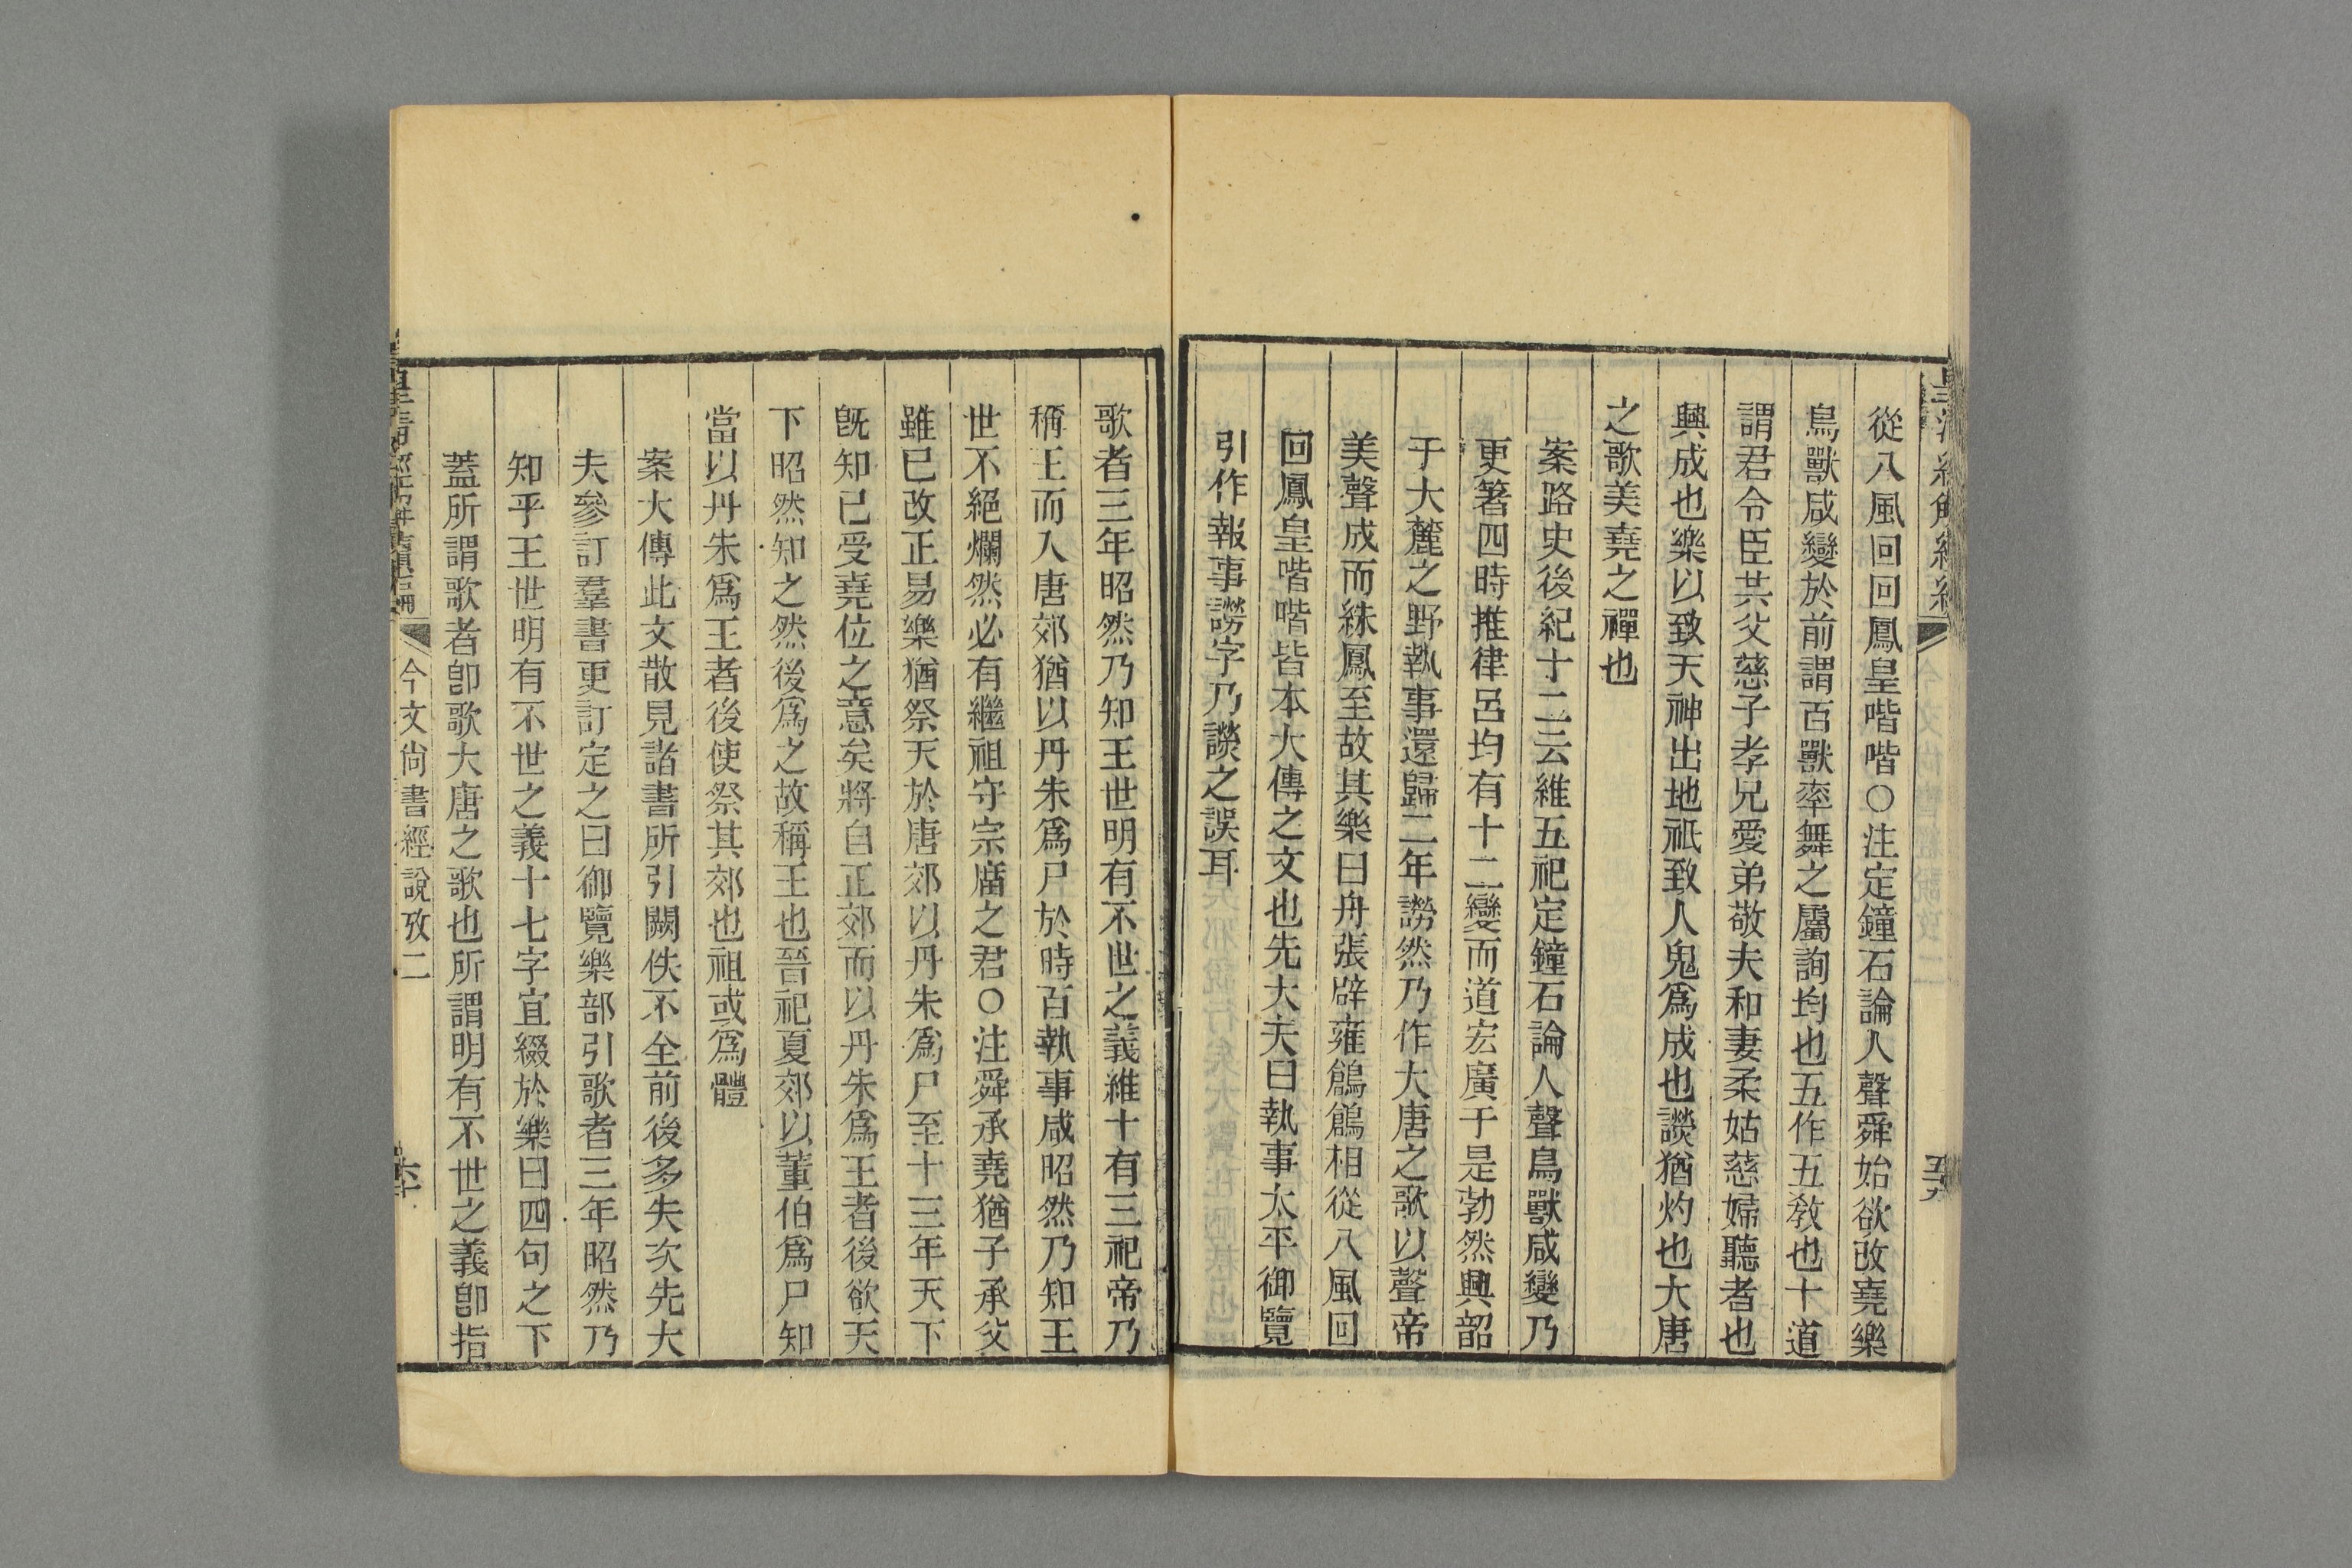 從八風回回鳳皇喈喈○注定鐘石論人聲舜始欲改堯樂
鳥獸咸變於前謂百獸率舞之屬詢均也五作五教也十道
謂君令臣共父慈子孝兄愛弟敬夫和妻柔姑慈婦聽者也
興成也樂以致天神出地祇致人鬼爲成也讌猶灼也大唐
之歌美堯之禪也
案路史後紀十二云維五祀定鐘石論人聲鳥獸咸變乃
更箸四時推律呂均有十二變而道宏廣于是勃然興韶
于大麓之野執事還歸二年謗然乃作大唐之歌以聲帝
美聲成而絑鳳至故其樂曰舟張辟雍鶬鶬相從八風回
回鳳皇喈喈皆本大傳之文也先大夫曰執事太平御覽
引作報事謗字乃讌之誤耳
歌者三年昭然乃知王世明有不世之義維十有三祀帝乃
稱王而入唐郊猶以丹朱爲尸於時百執事咸昭然乃知王
世不絕爛然必有繼祖守宗廟之君○注舜承堯猶子承父
雖已改正易樂猶祭天於唐郊以丹朱爲尸至十三年天下
旣知已受堯位之意矣將自正郊而以丹朱爲王者後欲天
下昭然知之然後爲之故稱王也晉祀夏郊以董伯爲尸知
當以丹朱爲王者後使祭其郊也祖或爲體
案大傳此文散見諸書所引闕佚不全前後多失次先大
夫參訂羣書更訂定之曰御覽樂部引歌者三年昭然乃
知乎王世明有不世之義十七字宜綴於樂曰四句之下
蓋所謂歌者卽歌大唐之歌也所謂明有不世之義卽指
今文尙書經說攷二
六十